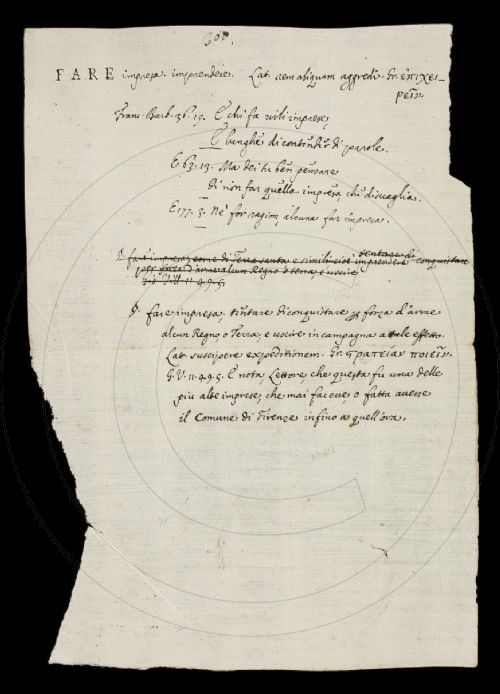 300.
FARE impresa. imprendere. Lat. rem aliquam aggredi. Gr. ἐπιχει-
ρεῖν.
Franc. Barb. 36. 19. E chi fa vili imprese,
E lunghe di contindir di parole.
E 63. 13. Ma dei tu ben pensare
di non far quella impresa, chi disvaglia.
E 177. 3. Ne for ragion, alcuna far impresa.
§. fare impresa, come di Terra santa e simili cioè imprendere tentare di conquistare
per forza d'arme alcun Regno o terra e uscire
G. V. 11. 49. 5.
§. fare impresa. tentare di conquistare per forza d'arme
alcun Regno, o Terra, e uscire in campagna a tale effetto.
Lat. suscipere expeditionem. Gr. στρατείαν ποιεῖν.
G. V. 11. 49. 5. E nota, Lettore, che questa fu una delle
più alte imprese, che mai facesse, o fatta avesse
il Comune di Firenze infino a quell'ora.